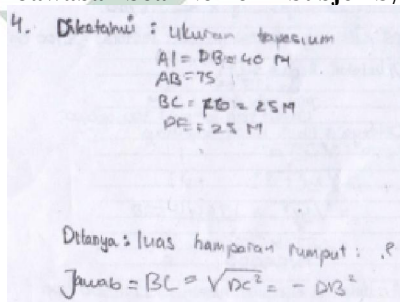 4. Diketahui : Ukuran trapesium
AI = DB = 40 M
AB = 75
BC = 25 M
DE = 25 M
Ditanya : luas hamparan rumput : ?
Jawab = BC = √DC² = - DB²